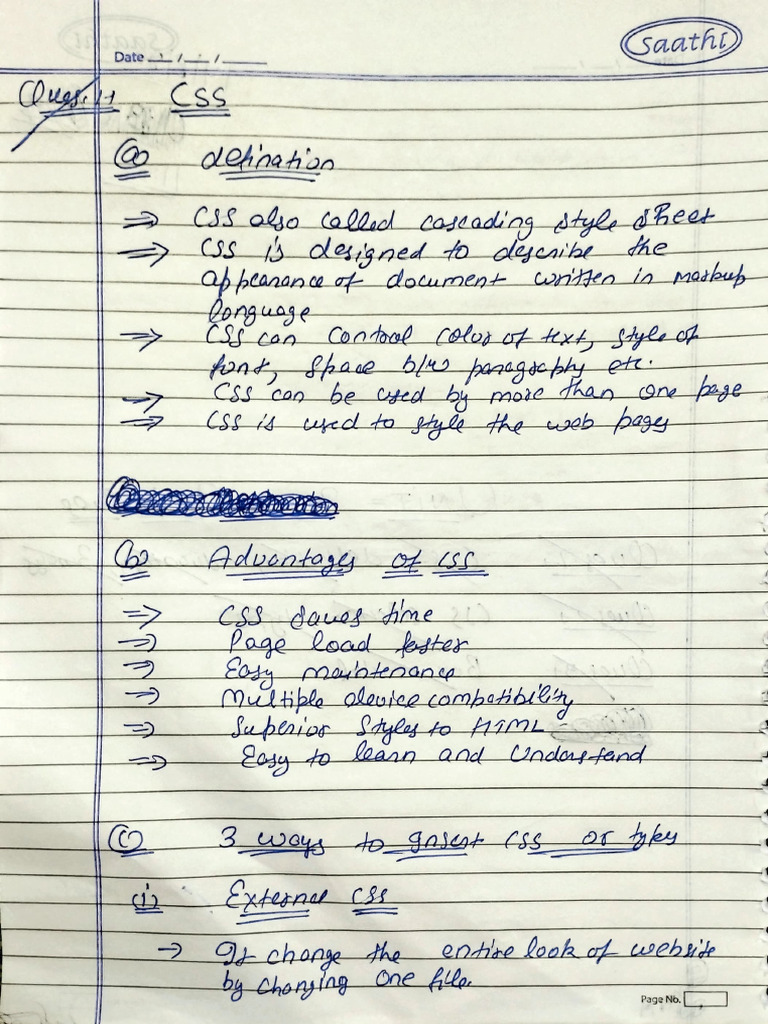 saathi
Date __/__/____
Ques. 1 CSS
(a) defination
⇒ CSS also called cascading style sheet
⇒ CSS is designed to describe the
appearance of document written in markup
language
⇒ CSS can control color of text, style of
font, space b/w paragraphy etc.
⇒ CSS can be used by more than one page
⇒ CSS is used to style the web pages
(b) Advantages of CSS
⇒ CSS saves time
⇒ Page load faster
⇒ Easy maintenance
⇒ Multiple device compatibility
⇒ Superior Styles to HTML
⇒ Easy to learn and Understand
(c) 3 ways to insert CSS or types
(i) External CSS
→ It change the entire look of website
by changing one file.
Page No.